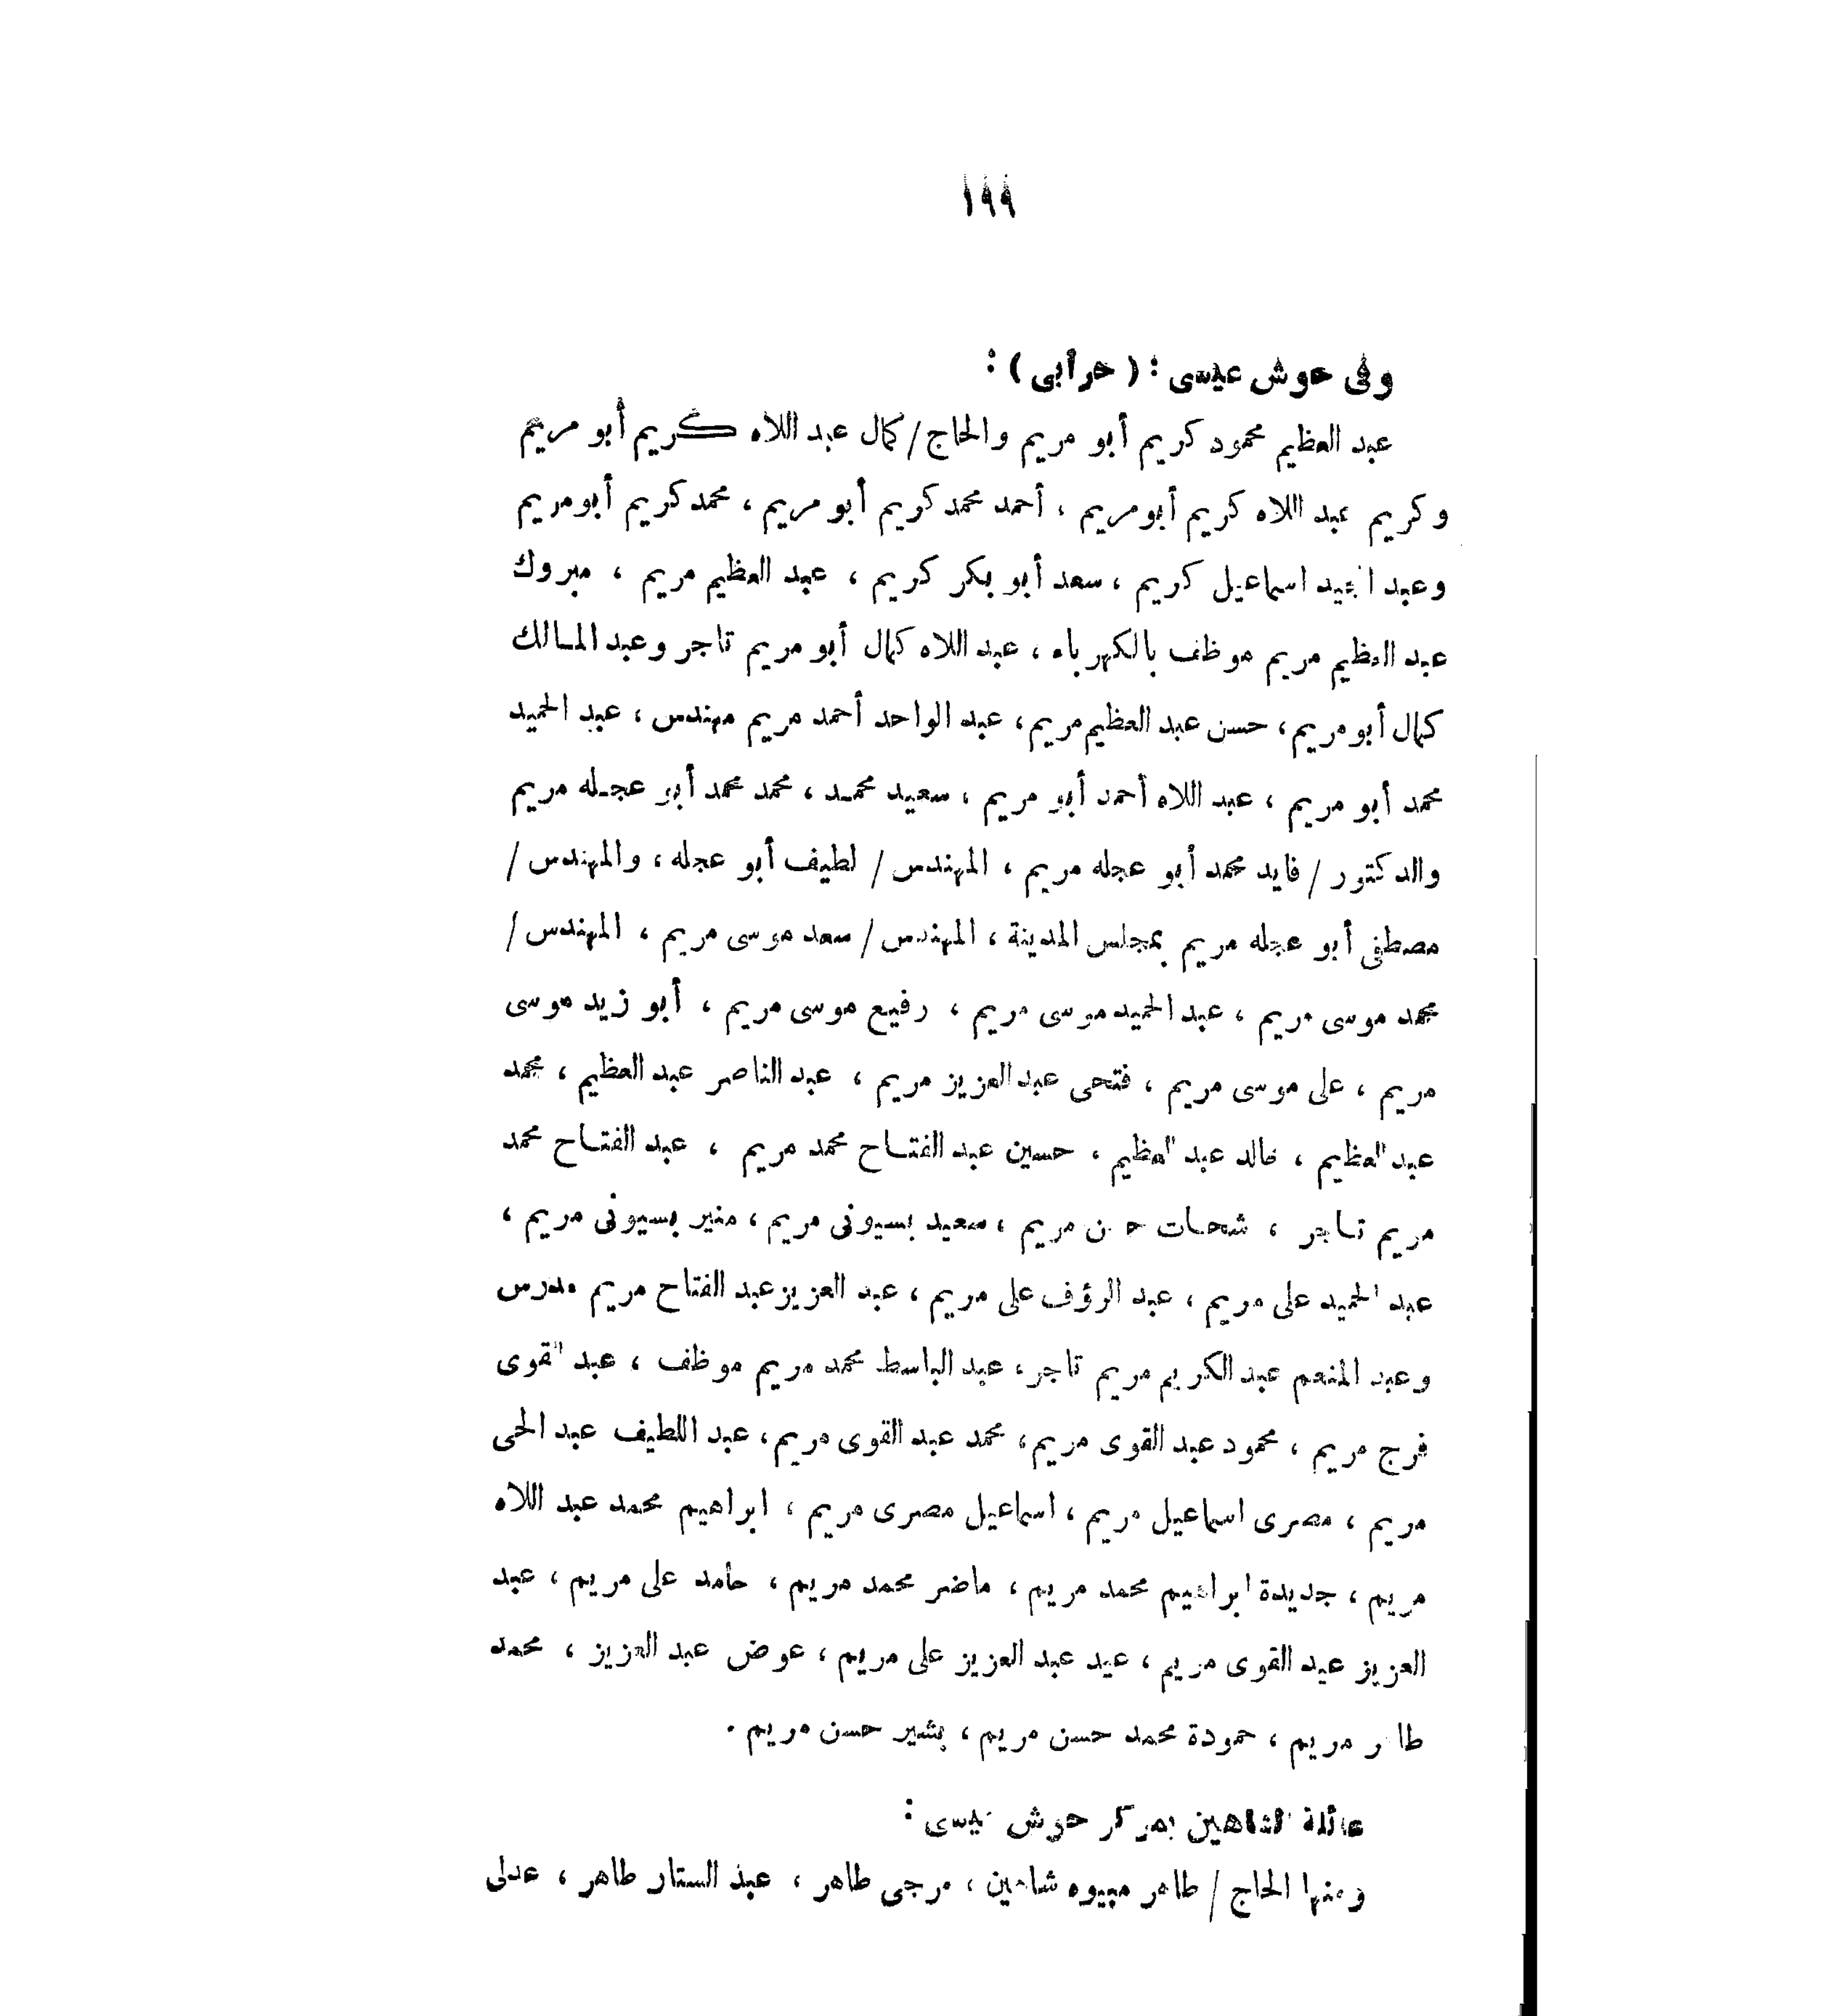 ١٩٩
وفى حوش عيسى : ( حرابى ) :
عبد العظيم محمود كريم أبو مريم والحاج / كمال عبد اللاه كريم أبو مريم
وكريم عبد اللاه كريم أبو مريم ، أحمد محمد كريم أبو مريم ، محمد كريم أبو مريم
وعبد اسماعيل كريم ، سعد أبو بكر كريم ، عبد العظيم مريم ، مبروك
عبد العظيم مريم موظف بالكهرباء ، عبد اللاه كمال أبو مريم تاجر وعبد المالك
كمال أبو مريم ، حسن عبد العظيم مريم ، عبد الواحد أحمد مريم مهندس ، عبد الحميد
محمد أبو مريم ، عبد اللاه أحمد أبو مريم ، سعيد محمد ، محمد محمد أبو عجله مريم
والدكتور / فايد محمد أبو عجله مريم ، المهندس / لطيف أبو عجله ، والمهندس /
مصطفى أبو عجله مريم بمجلس المدينة ، المهندس / سعد موسى مريم ، المهندس /
محمد موسى مريم ، عبد الحميد موسى مريم ، رفيع موسى مريم ، أبو زيد موسى
مريم ، على موسى مريم ، فتحى عبد العزيز مريم ، عبد الناصر عبد العظيم ، محمد
عبد العظيم ، خالد عبد العظيم ، حسين عبد الفتاح محمد مريم ، عبد الفتاح محمد
مريم تاجر ، شحات حسن مريم ، سعيد بسيونى مريم ، منير بسيونى مريم ،
عبد الحميد على مريم ، عبد الرؤف على مريم ، عبد العزيز عبد الفتاح مريم مدرس
وعبد المنعم عبد الكريم مريم تاجر ، عبد الباسط محمد مريم موظف ، عبد القوى
فرج مريم ، محمود عبد القوى مريم ، محمد عبد القوى مريم ، عبد اللطيف عبد الحى
مريم ، مصرى اسماعيل مريم ، اسماعيل مصرى مريم ، ابراهيم محمد عبد اللاه
مريم ، جديدة ابراهيم محمد مريم ، ماضر محمد مريم ، حامد على مريم ، عبد
العزيز عبد القوى مريم ، عيد عبد العزيز على مريم ، عوض عبد العزيز ، محمد
طاهر مريم ، حمودة محمد حسن مريم ، بشير حسن مريم .
عائلة الشاهين بمركز حوش عيسى :
ومنها الحاج / طاهر مبيوه شاهين ، مرجى طاهر ، عبد الستار طاهر ، عدلى